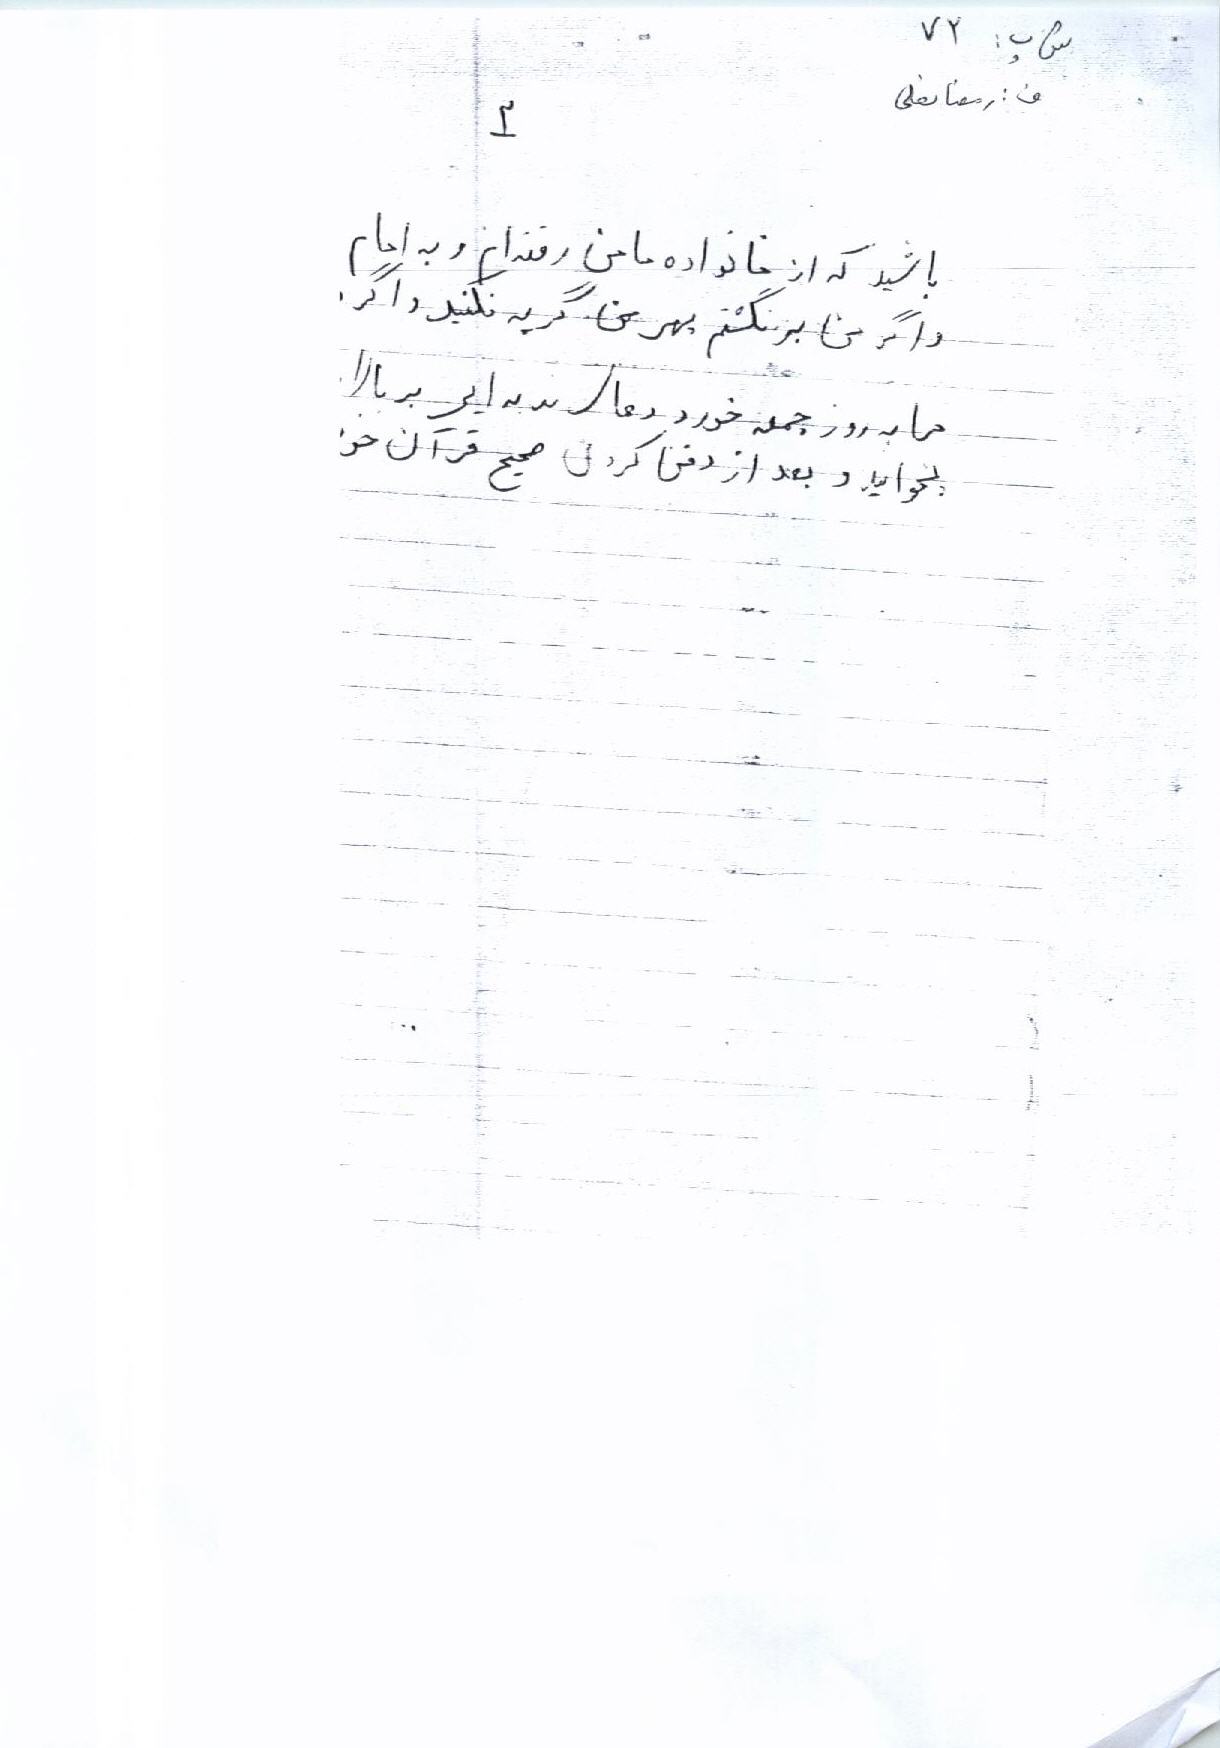 ش پ: ۷۲
ف: رمضانعلی
۳
باشید که از خانواده ما من رفته‌ام و به امام
و اگر من برنگشتم بهر من گریه نکنید و اگر
ما به روز جمعه خورد دعای ندبه ایی بر بالا
بخوانید و بعد از دفن کردن صحیح قرآن